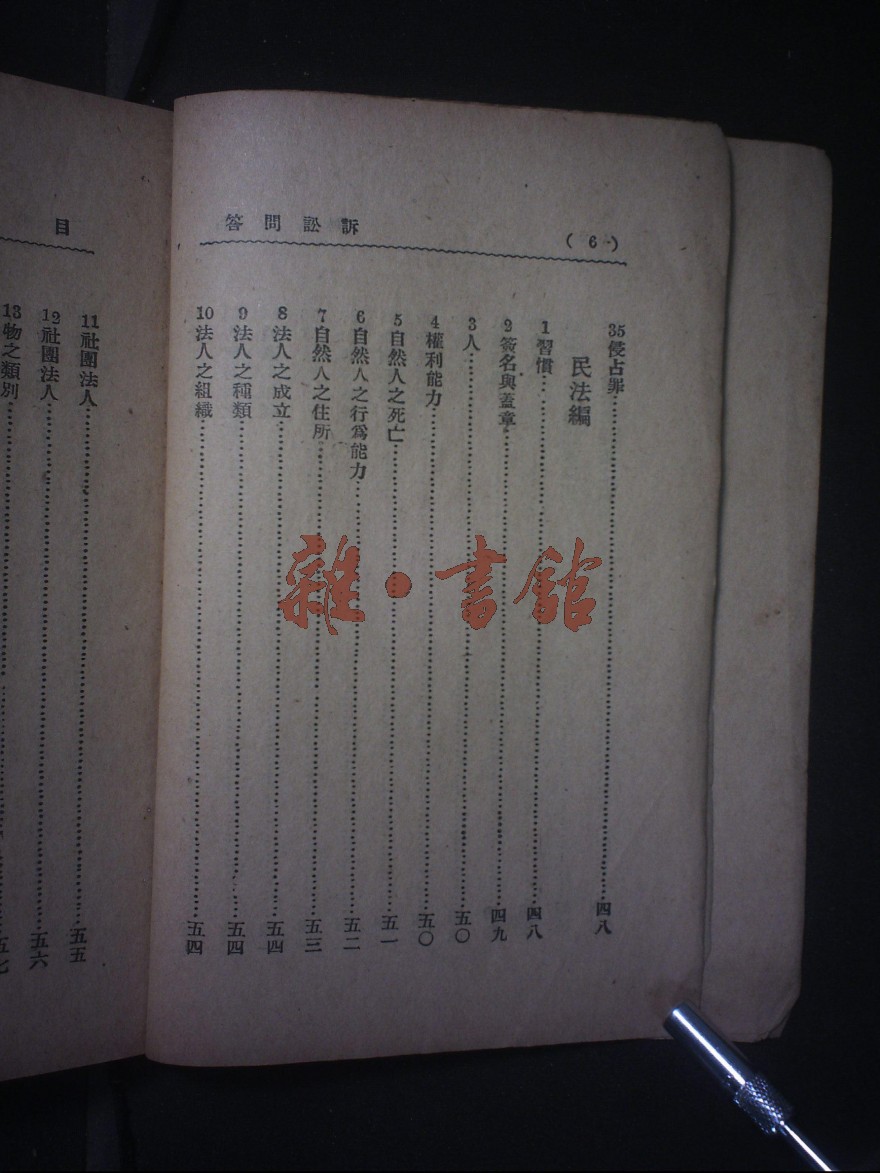 訴訟問答
( 6 )
35 侵占罪……四八
民法編
1 習慣……四八
2 簽名與蓋章……四九
3 人……五〇
4 權利能力……五〇
5 自然人之死亡……五一
6 自然人之行為能力……五二
7 自然人之住所……五三
8 法人之成立……五四
9 法人之種類……五四
10 法人之組織……五四
目
11 社團法人……五五
12 社團法人……五六
13 物之類別……五七
雜·書館